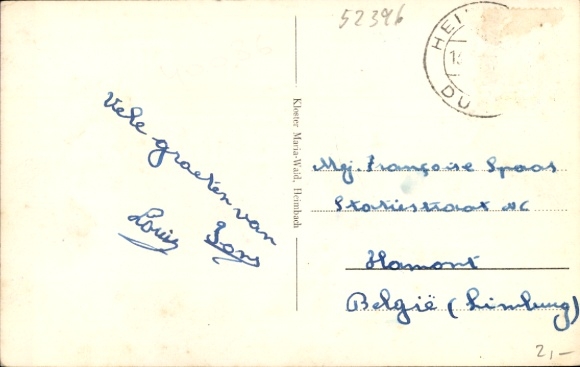 52396
HEI
DU
Vele groeten van
Louis Sans
Kloster Maria-Wald, Heimbach
Mej. Françoise Spaas
Statiestraat
Hamont
België (Limburg)
2,-